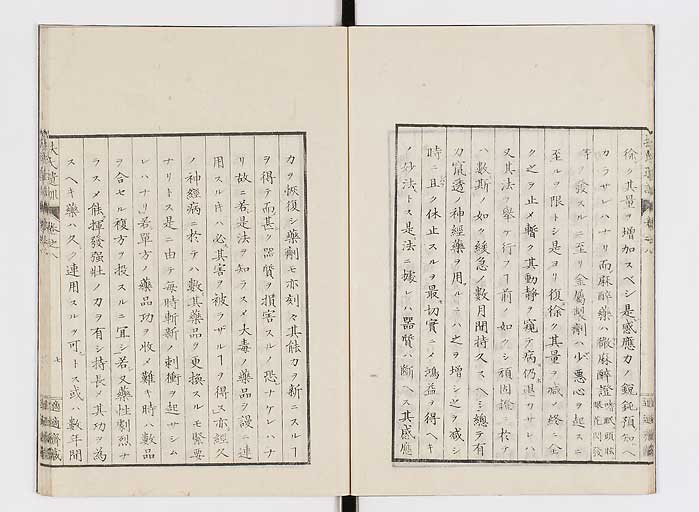 徐ク其量ヲ增加スベシ是感應力ノ鋭鈍預知ヘ
カラサレハナリ而麻醉藥ハ微麻醉證嗜眠頭眩眼花閃發
等ヲ發スルニ至リ金屬製劑ハ少ク悪心ヲ起スニ
至ルヲ限トシ是ヨリ復徐ク其量ヲ減シ終ニ全
ク之ヲ止メ暫ク其動静ヲ窺テ病仍退サレハ
又其法ヲ擧ケ行フヿ前ノ如クシ頑固證ニ於テ
ハ數斯ノ如ク緩急ノ數月間持久スヘシ總テ有
力竄透ノ神經藥ヲ用ルニハ之ヲ增シ之ヲ減シ
時ニ且ク休止スルヲ最切實ニメ鴻益ヲ得ヘキ
ノ妙法トス是法ニ據レハ器質ハ斷ヘス其感應
力ヲ恢復シ藥劑モ亦刻々其能力ヲ新ニスルヿ
ヲ得テ而甚ク器質ヲ損害スルノ恐ナケレハナ
リ故ニ若是法ヲ知ラスメ大毒ノ藥品ヲ謾ニ連
用スル片ハ必其害ヲ被ラザルヿヲ得ス亦經久
ノ神經病ニ於テハ數其藥品ヲ更換スルモ緊要
ナリトス是ニ由テ每時斬新ノ刺衝ヲ起サシム
レハナリ若單方ノ藥品功ヲ收メ難キ時ハ數品
ヲ合セル複方ヲ投スルニ宜シ若又藥性劇烈ナ
ラスメ能揮發强壯ノ力ヲ有シ持長メ其功ヲ為
スヘキ藥ハ久ク連用スルヲ可トス或ハ數年間
七
適適齋藏